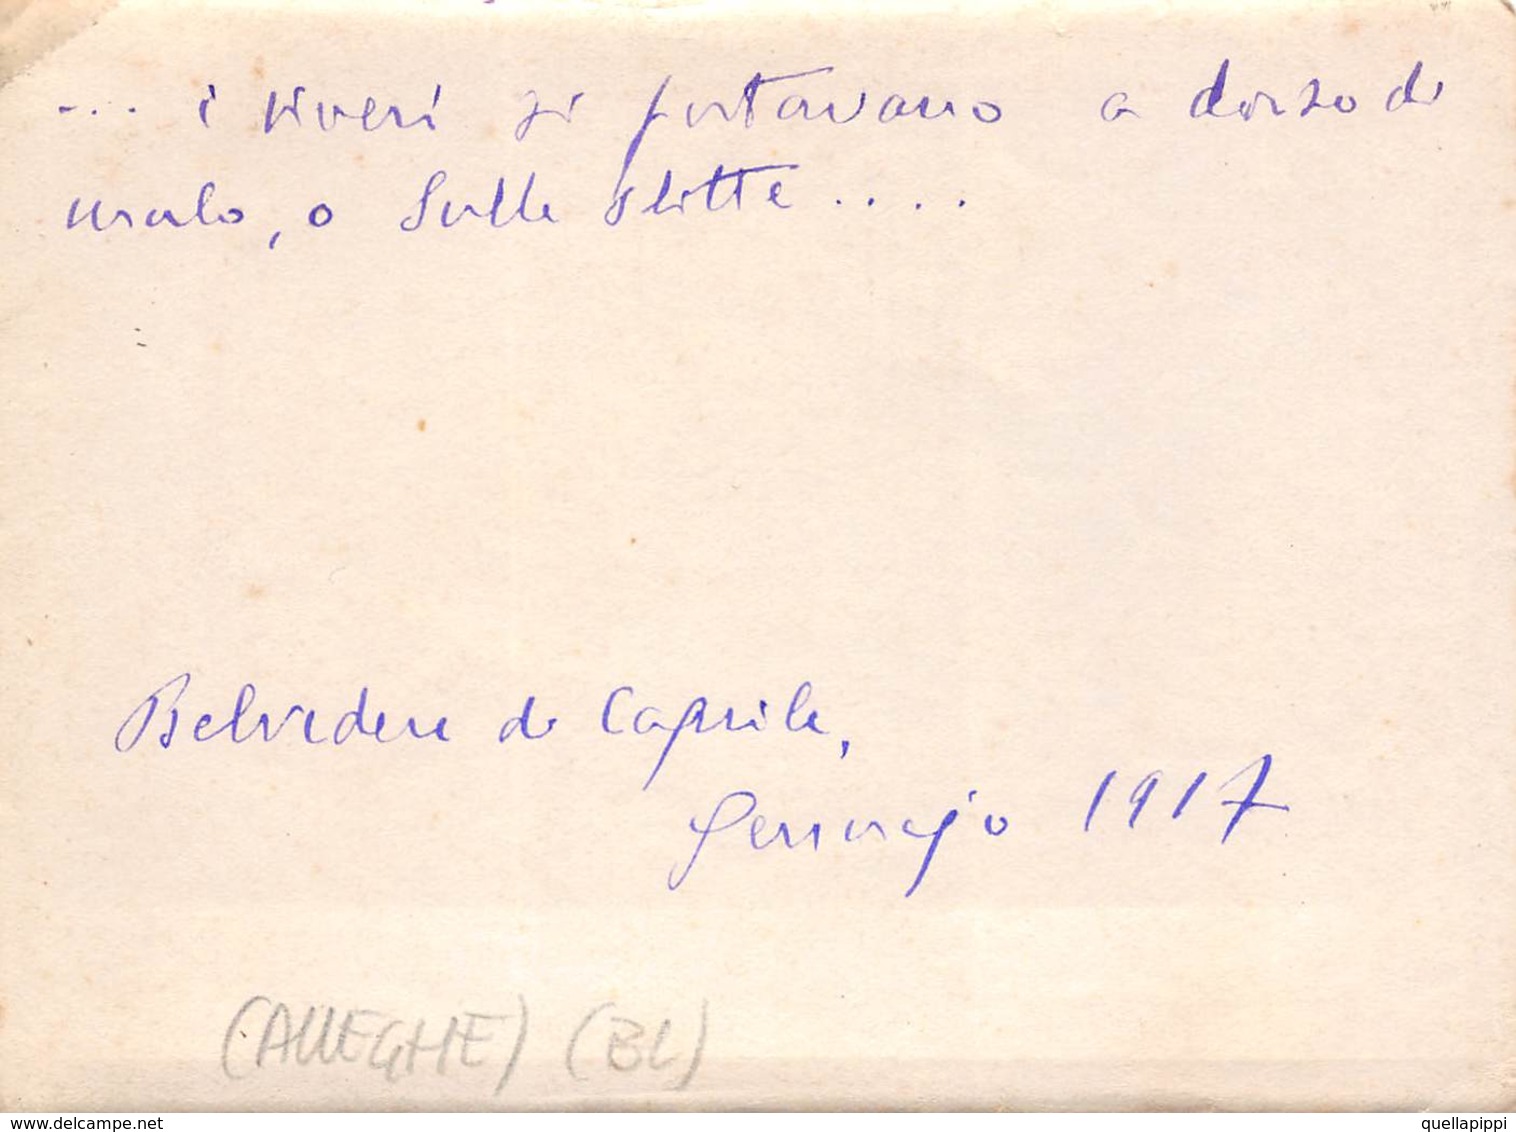 ... i viveri si portavano a dorso di
mulo, o sulle slitte ....
Belvedere di Caprile,
Gennajo 1917
(ALLEGHE) (BL)
delcampe.net
quellapippi